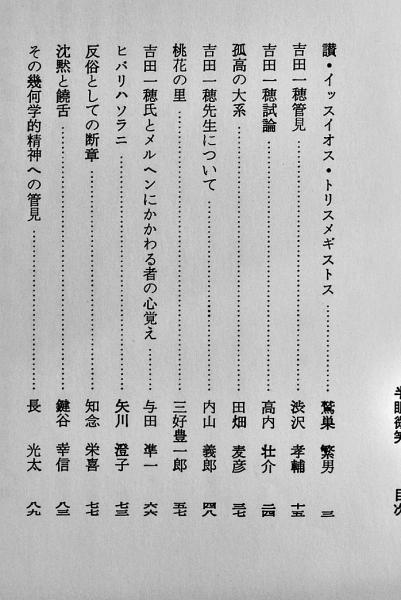 半眼微笑 目次
讃・イッスイオス・トリスメギストス 鷲巣 繁男 三
吉田一穂管見 渋沢 孝輔 十五
吉田一穂試論 高内 壮介 二四
孤高の大系 田畑 麦彦 三七
吉田一穂先生について 内山 義郎 四八
桃花の里 三好豊一郎 五七
吉田一穂氏とメルヘンにかかわる者の心覚え 与田 凖一 六六
ヒバリハソラニ 矢川 澄子 七三
反俗としての断章 知念 栄喜 七七
沈黙と饒舌 鍵谷 幸信 八三
その幾何学的精神への管見 長 光太 八九